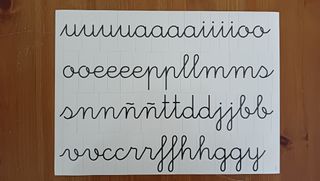 uuuuaaaaiiiioo
ooeeeeppllmms
snnññttddjjbb
vvccrrffhhggy